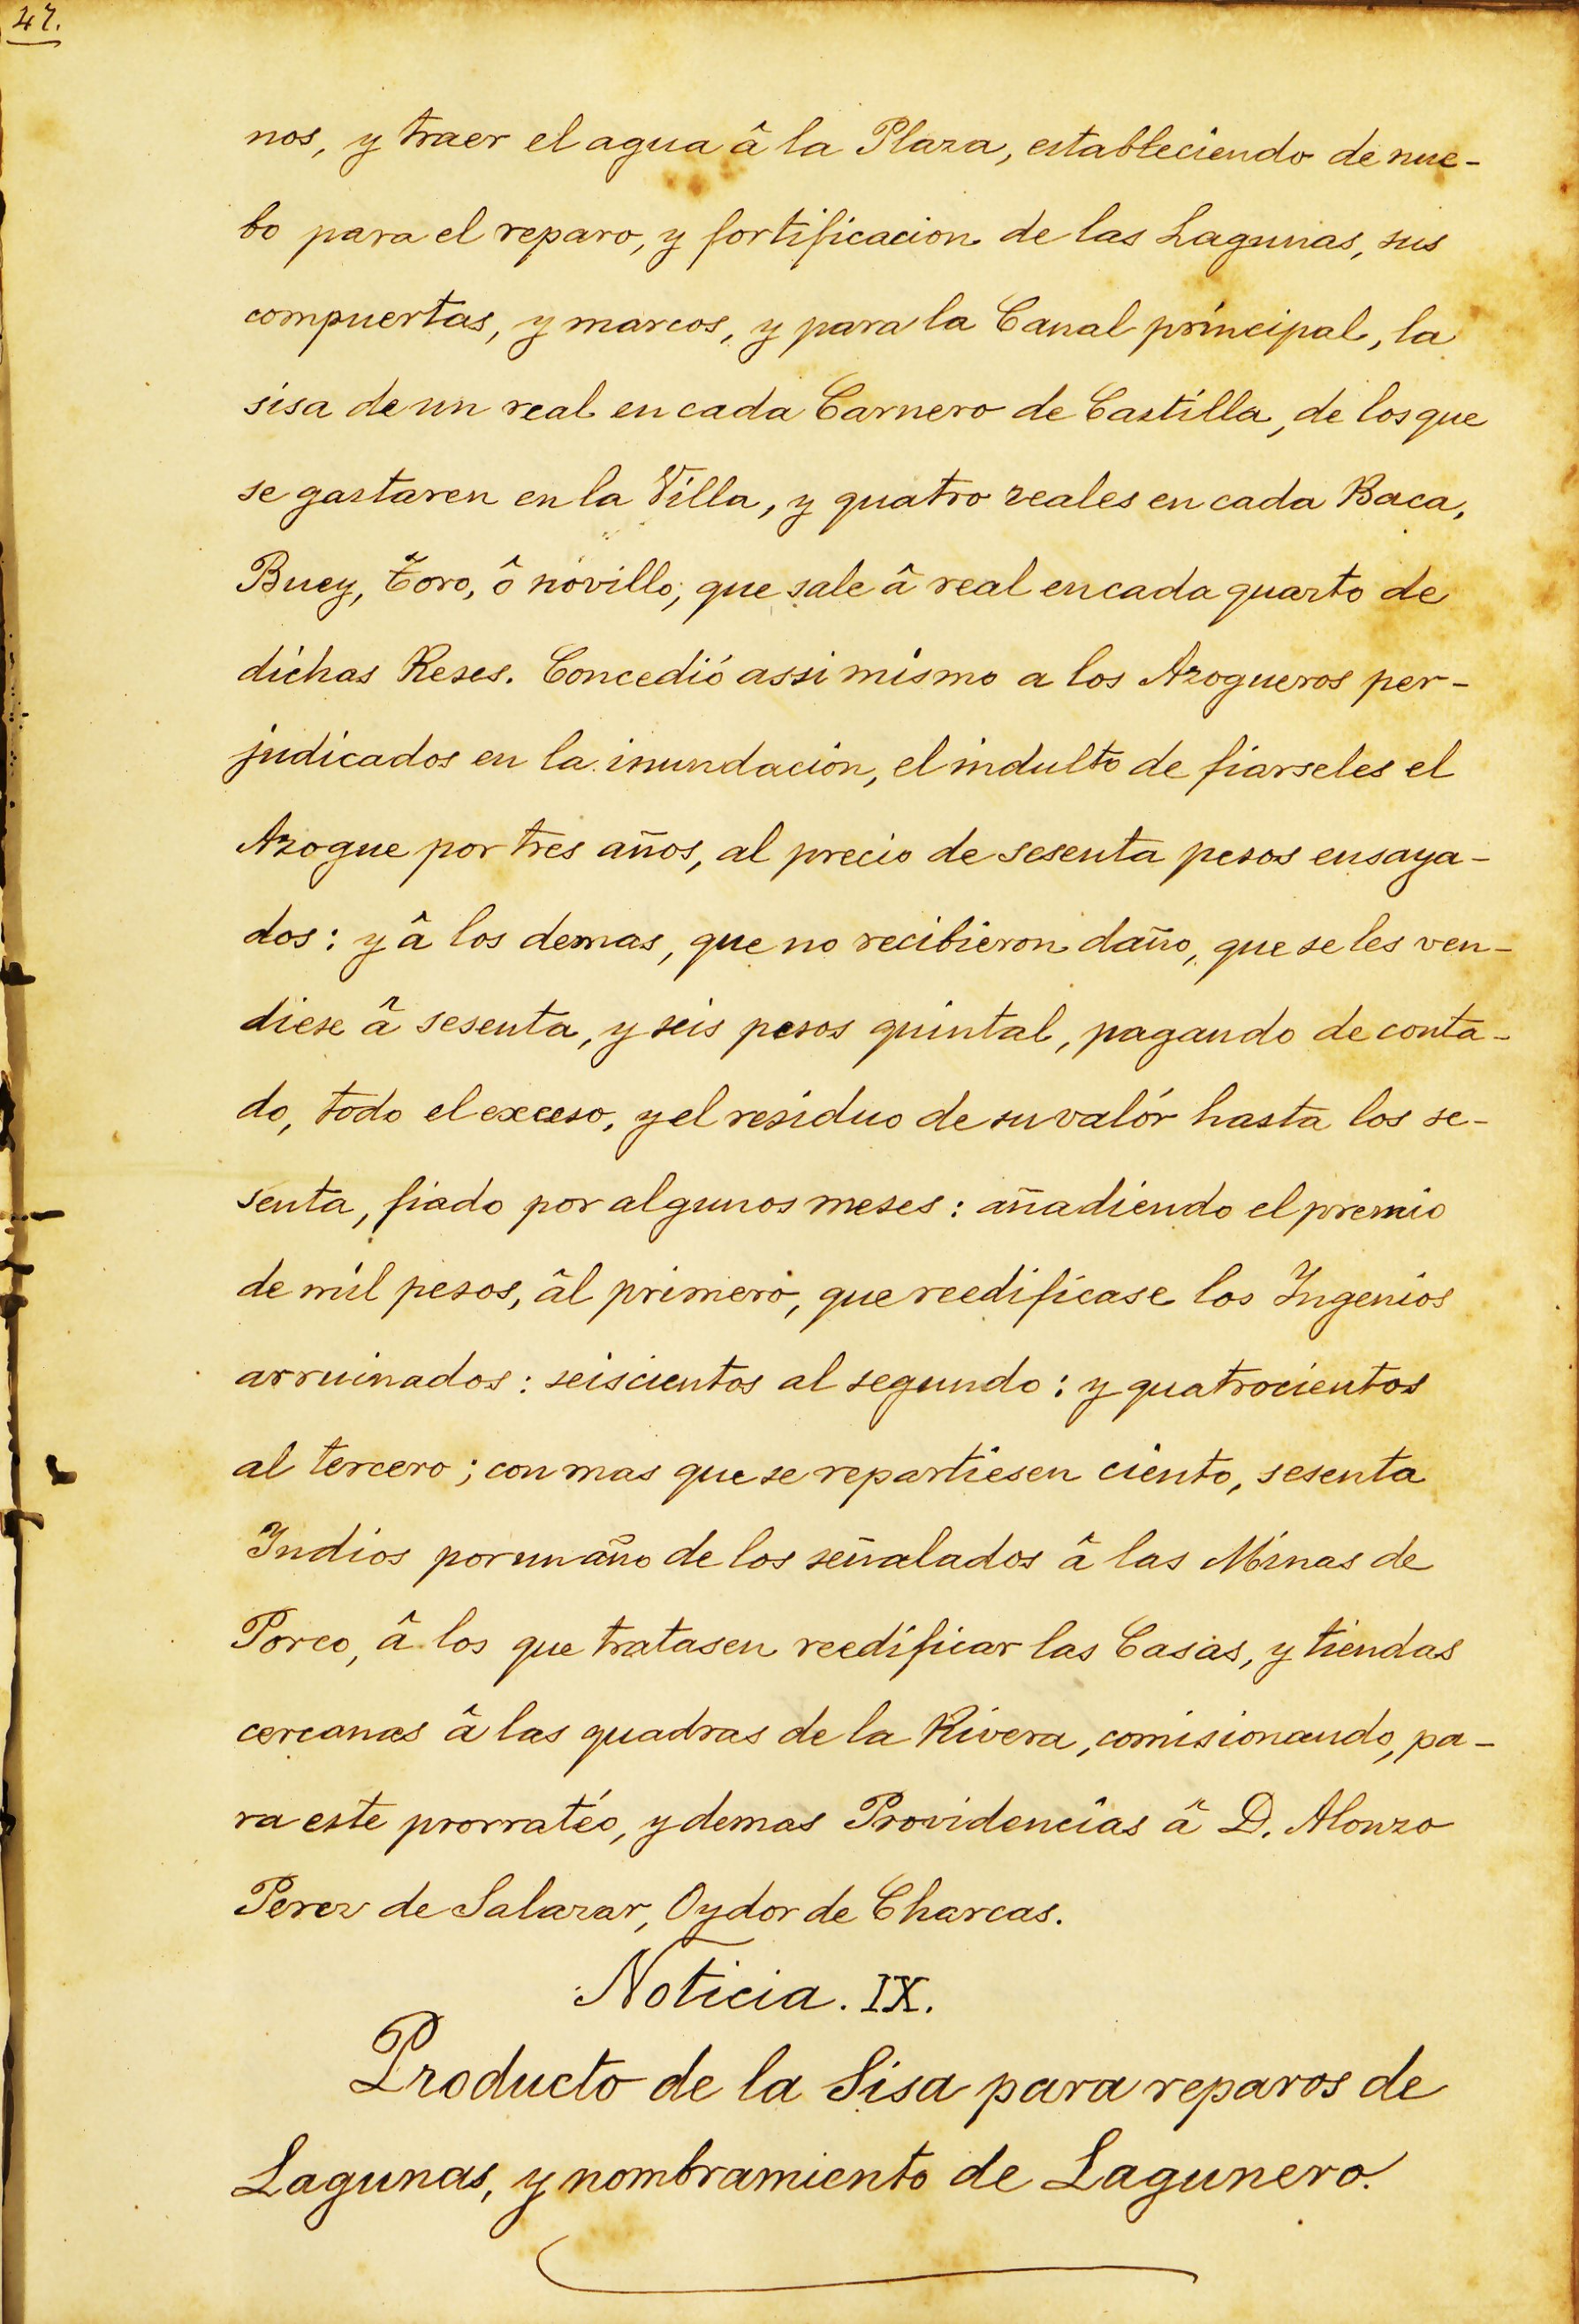 47.
nos, y traer el agua â la Plaza, estableciendo de nue-
bo para el reparo, y fortificacion de las Lagunas, sus
compuertas, y marcos, y para la Canal principal, la
sisa de un real en cada Carnero de Castilla, de los que
se gastaren en la Villa, y quatro reales en cada Baca,
Buey, Toro, ô novillo, que sale â real en cada quarto de
dichas Reses. Concedió assi mismo a los Azogueros per-
judicados en la inundacion, el indulto de fiarseles el
Azogue por tres años, al precio de sesenta pesos ensaya-
dos: y â los demas, que no recibieron daño, que se les ven-
diese â sesenta, y seis pesos quintal, pagando de conta-
do, todo el exceso, y el residuo de su valór hasta los se-
senta, fiado por algunos meses: añadiendo el premio
de mil pesos, âl primero, que reedificase los Ingenios
arruinados: seiscientos al segundo: y quatrocientos
al tercero; con mas que se repartiesen ciento, sesenta
Indios por un año de los señalados â las Minas de
Porco, â los que tratasen reedificar las Casas, y tiendas
cercanas â las quadras de la Rivera, comisionando, pa-
ra este prorratéo, y demas Providencias â D. Alonzo
Perez de Salazar, Oydor de Charcas.
Noticia. IX.
Producto de la Sisa para reparos de
Lagunas, y nombramiento de Lagunero.